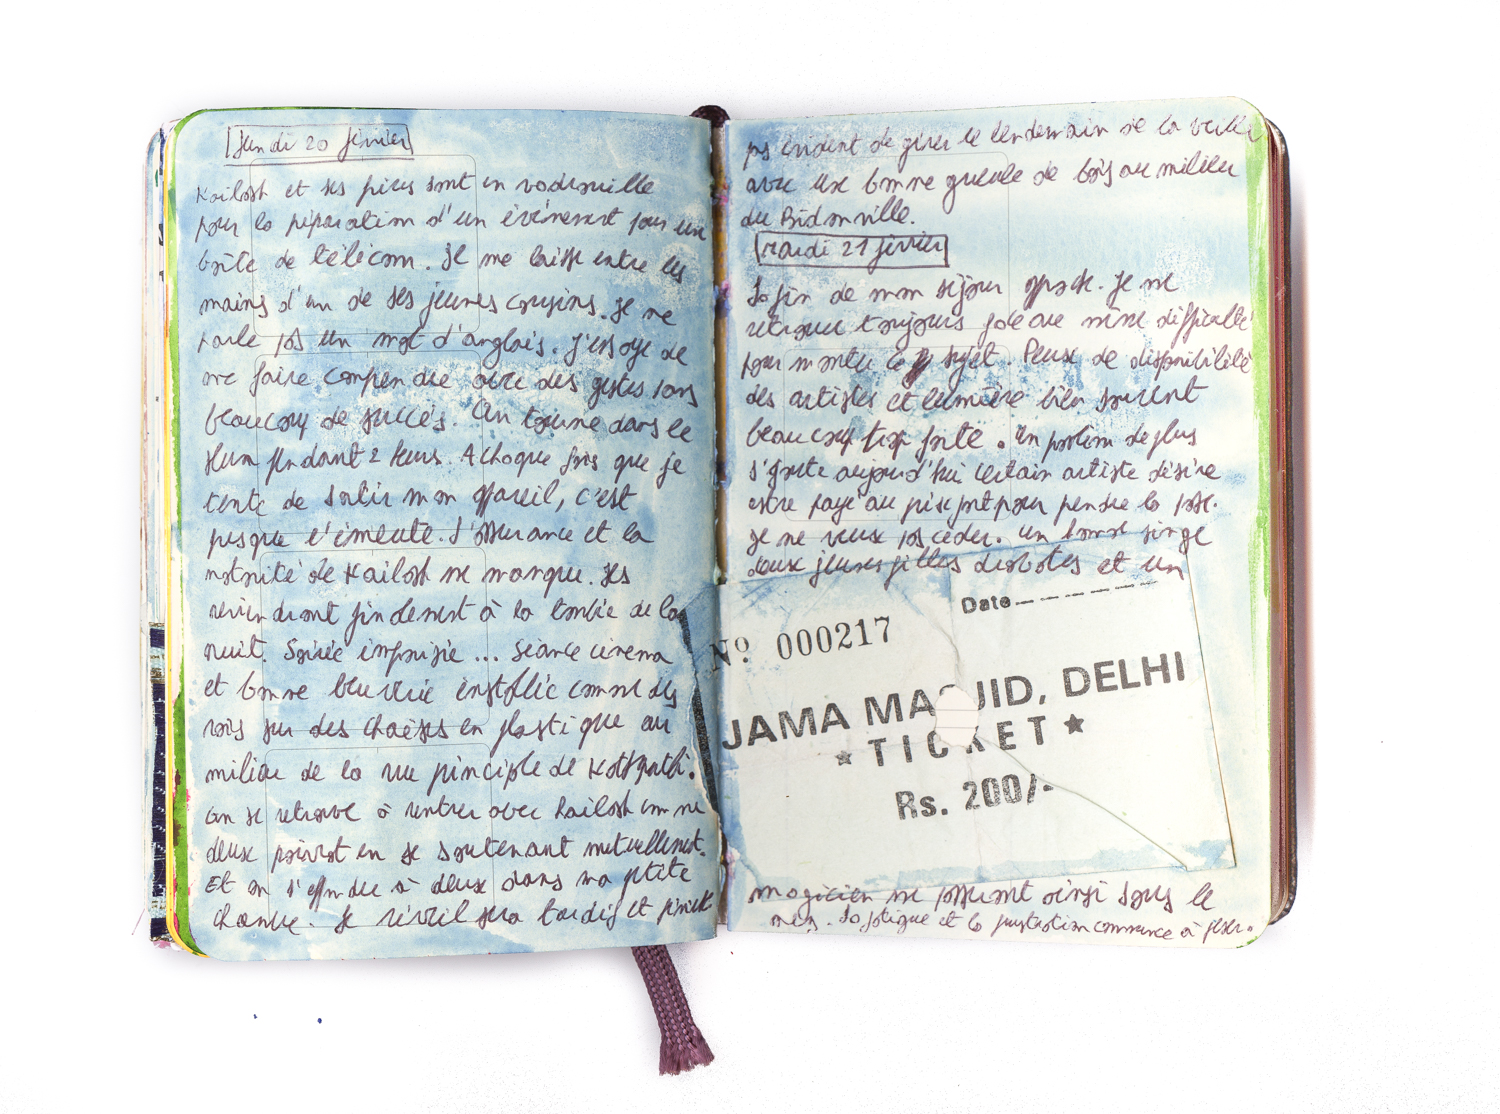 Lundi 20 février
Kailash et ses pères sont en vadrouille
pour la préparation d'un événement pour une
boîte de télécom. Il me laisse entre les
mains d'un de ses jeunes cousins. Je ne
parle pas un mot d'anglais. J'essaye de
me faire comprendre avec des gestes sans
beaucoup de succès. On tourne dans le
slum pendant 2 heures. A chaque fois que je
tente de sortir mon appareil, c'est
presque l'émeute. L'assurance et la
notoriété de Kailash me manque. Ils
reviendront finalement à la tombée de la
nuit. Soirée improvisée ... séance cinema
et bonne beuverie installé comme des
rois sur des chaises en plastique au
milieu de la rue principale de Kathputli.
On se retrouve à rentrer avec Kailash comme
deux poivrot en se soutenant mutuellement.
Et on s'effondre à deux dans ma ptite
chambre. Le réveil sera tardif et
pas évident de gérer le lendemain de la veille
avec une bonne gueule de bois au milieu
du Bidonville.
Mardi 21 février
La fin de mon séjour approche. Je me
retrouve toujours face au même difficulté
pour monter ce sujet. Peux de disponibilité
des artistes et lumière bien souvent
beaucoup trop forte. Un problem de plus
s'ajoute aujourd'hui certain artiste désire
être payé au pour prendre la pose.
Je ne veux pas céder. Un homme singe
deux jeunes filles acrobates et un
Date
Nº 000217
JAMA MASJID, DELHI
★ TICKET ★
Rs. 200/-
magicien me passeront ainsi sous le
nez. La fatigue et la frustration commence à peser.